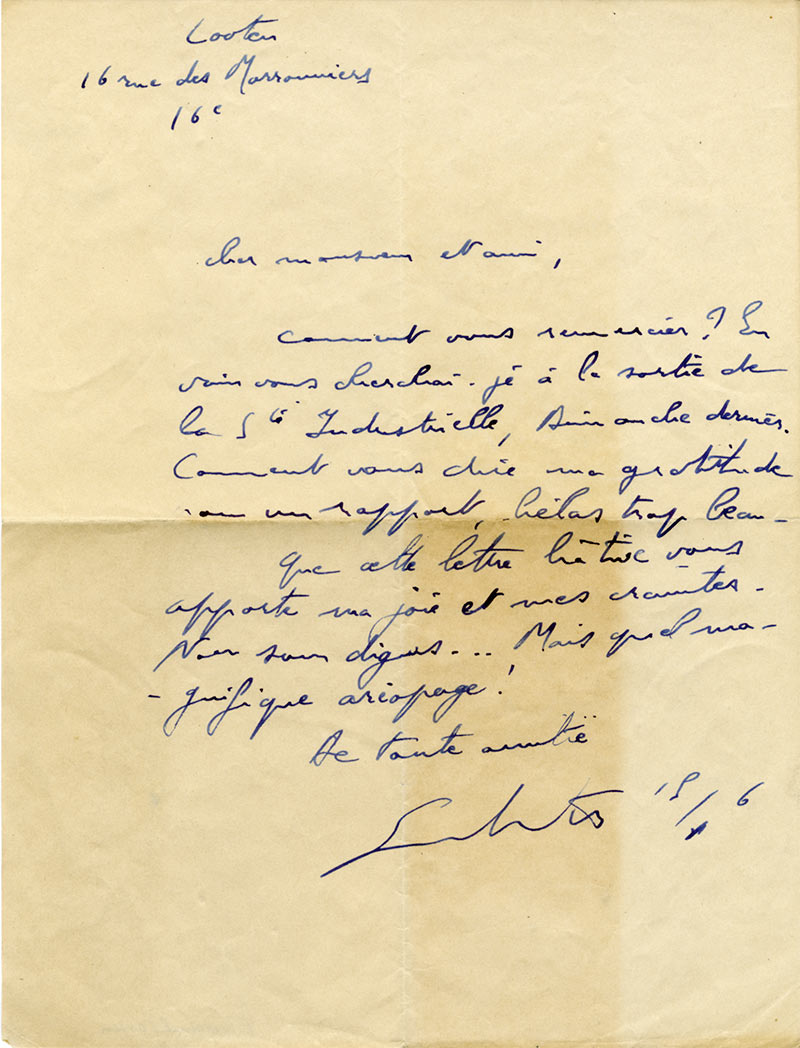 Looten
16 rue des Marronniers
16e
cher monsieur et ami,
Comment vous remercier? En
vain vous cherchai-je à la sortie de
la Sté Industrielle, Dimanche dernier.
Comment vous dire ma gratitude
un rapport, hélas trop beau-
Que cette lettre hâtive vous
apporte ma joie et mes craintes.
digues... Mais quel ma-
-gnifique aréopage!
De toute amitié
15/ 6